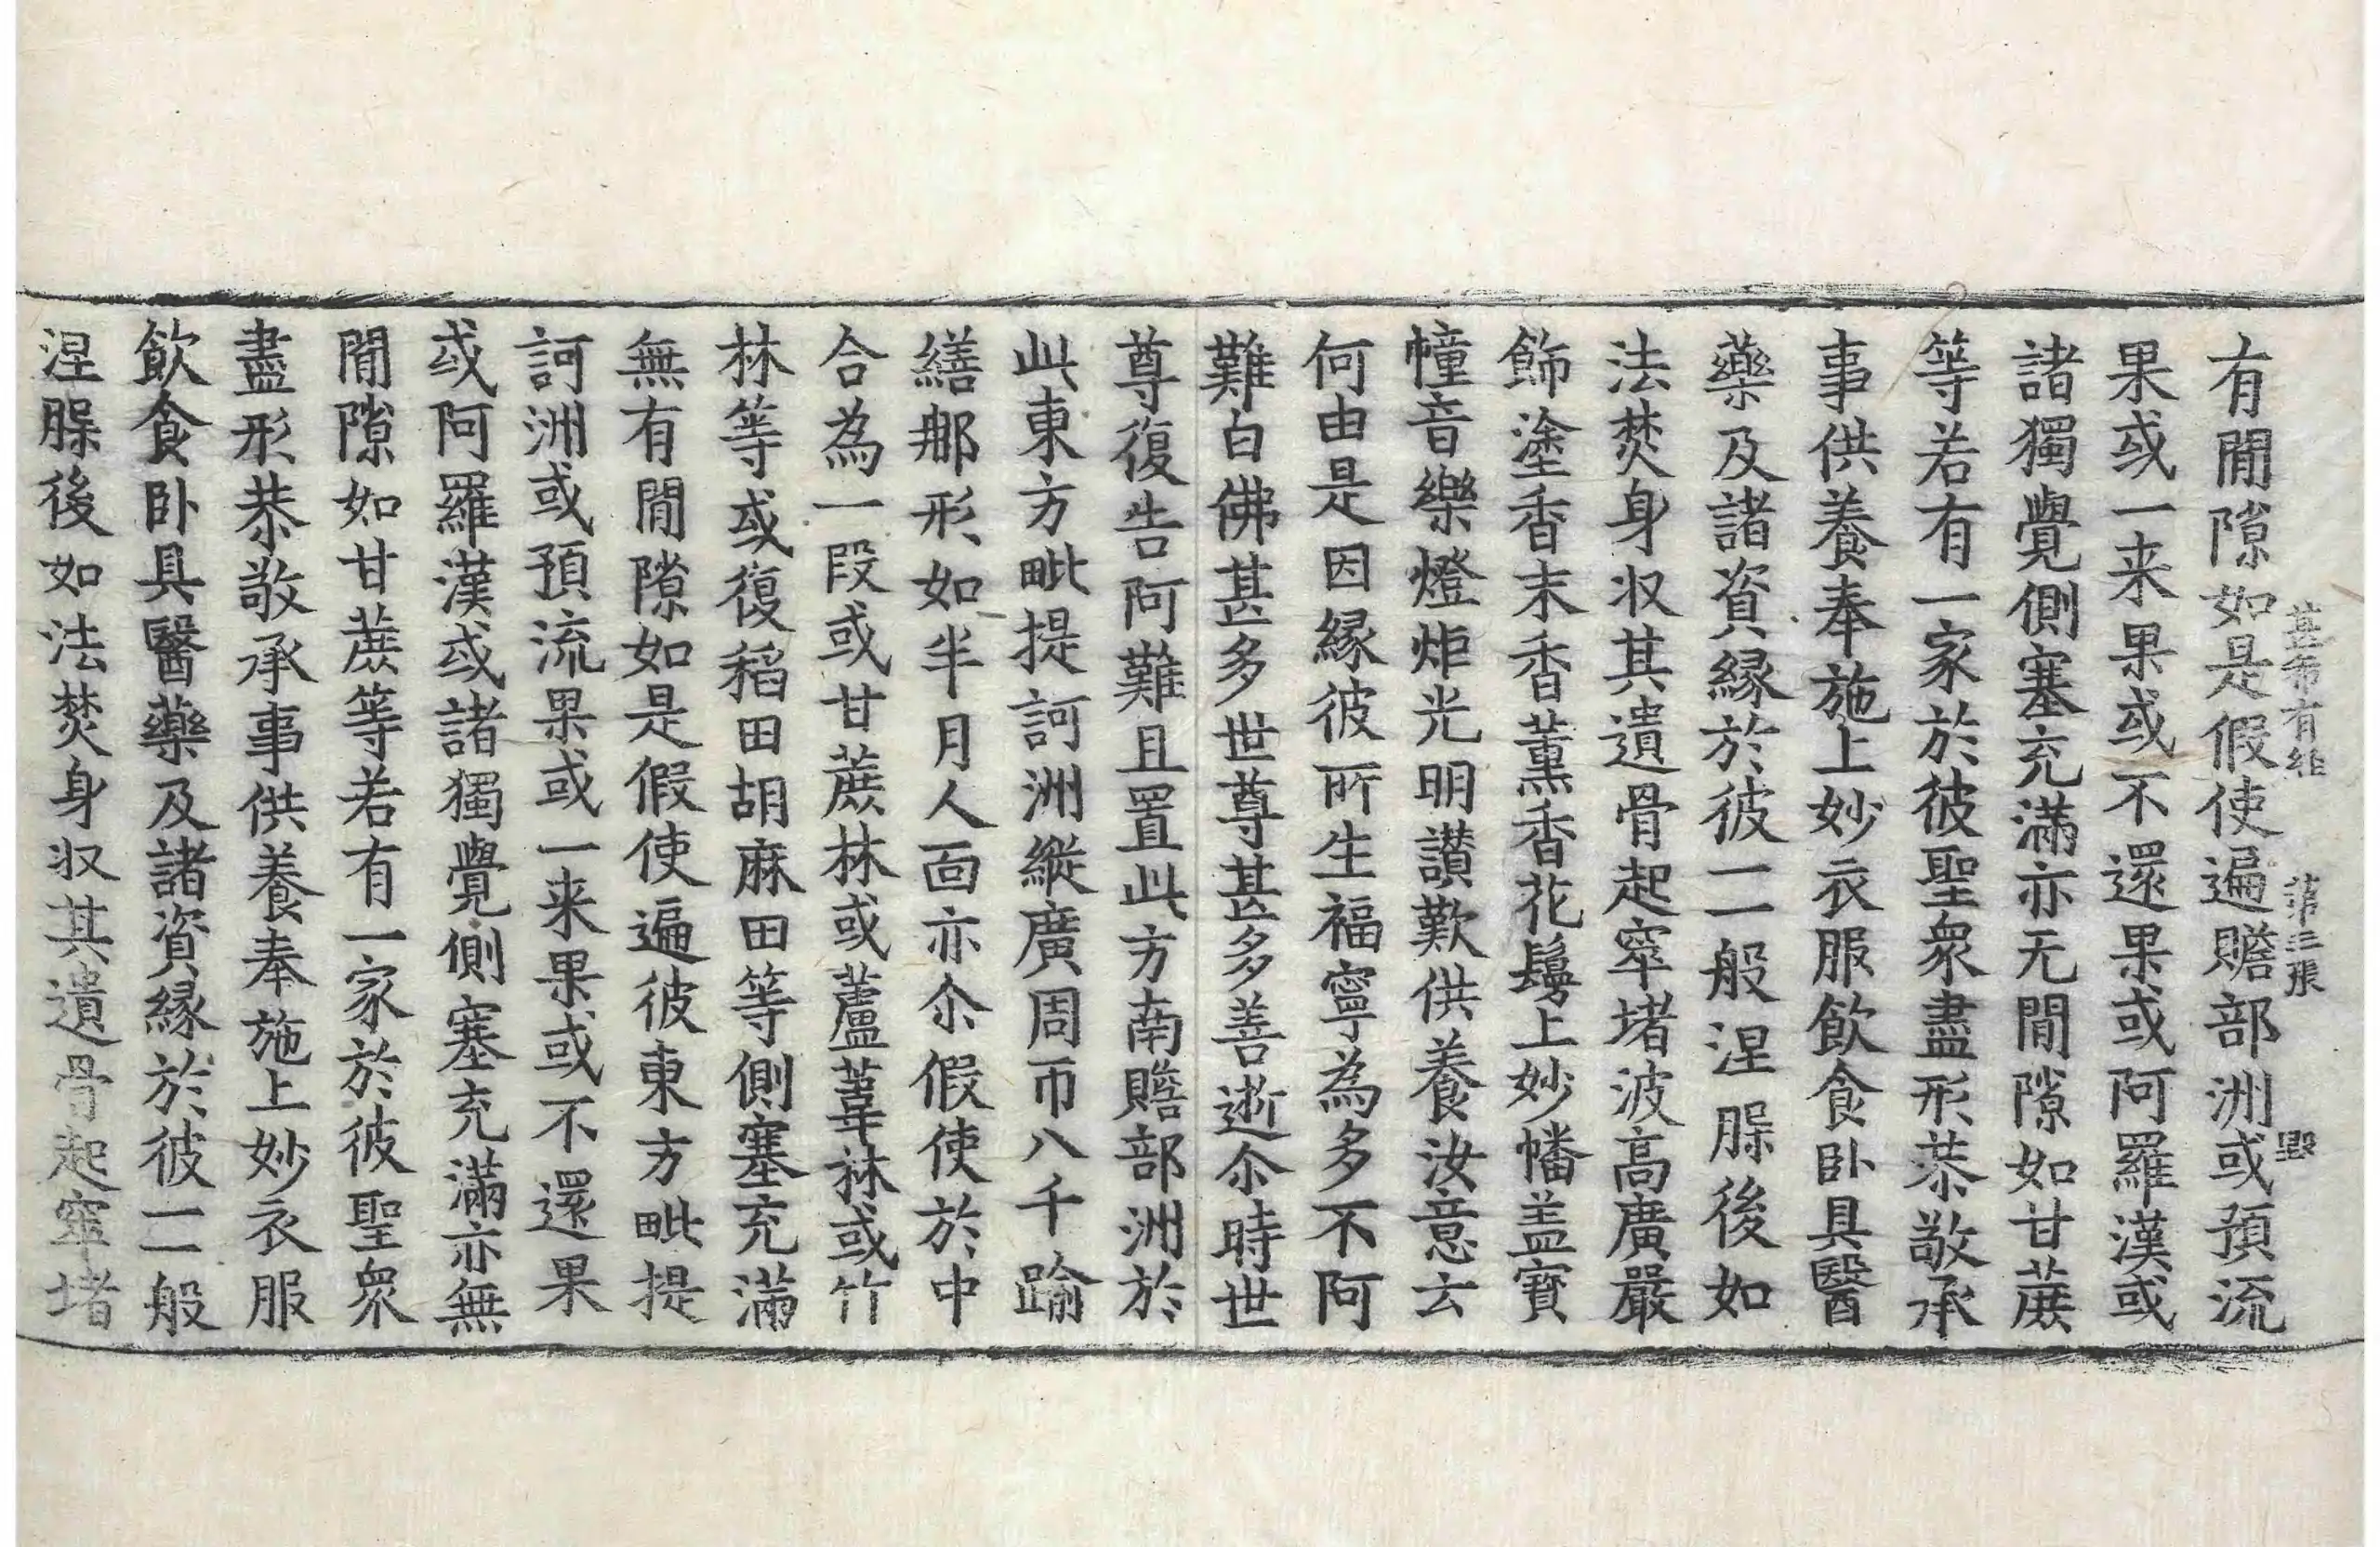 甚希有經 第三張 毀
有閒隙如是假使遍贍部洲或預流
果或一来果或不還果或阿羅漢或
諸獨覺側塞充滿亦无閒隙如甘蔗
等若有一家於彼聖衆盡形恭敬承
事供養奉施上妙衣服飲食卧具醫
藥及諸資縁於彼一一般涅腂後如
法焚身収其遺骨起窣堵波高廣嚴
飾塗香末香薰香花鬘上妙幡盖寶
幢音樂燈炬光明讃歎供養汝意云
何由是因縁彼所生福寧為多不阿
難白佛甚多世尊甚多善逝尒時世
尊復告阿難且置此方南贍部洲於
此東方毗提訶洲縱廣周帀八千踰
繕那形如半月人面亦尒假使於中
合為一段或甘蔗林或蘆葦林或竹
林等或復稻田胡麻田等側塞充滿
無有閒隙如是假使遍彼東方毗提
訶洲或預流果或一来果或不還果
或阿羅漢或諸獨覺側塞充滿亦無
閒隙如甘蔗等若有一家於彼聖衆
盡形恭敬承事供養奉施上妙衣服
飲食卧具醫藥及諸資縁於彼一一般
涅腂後如法焚身収其遺骨起窣堵